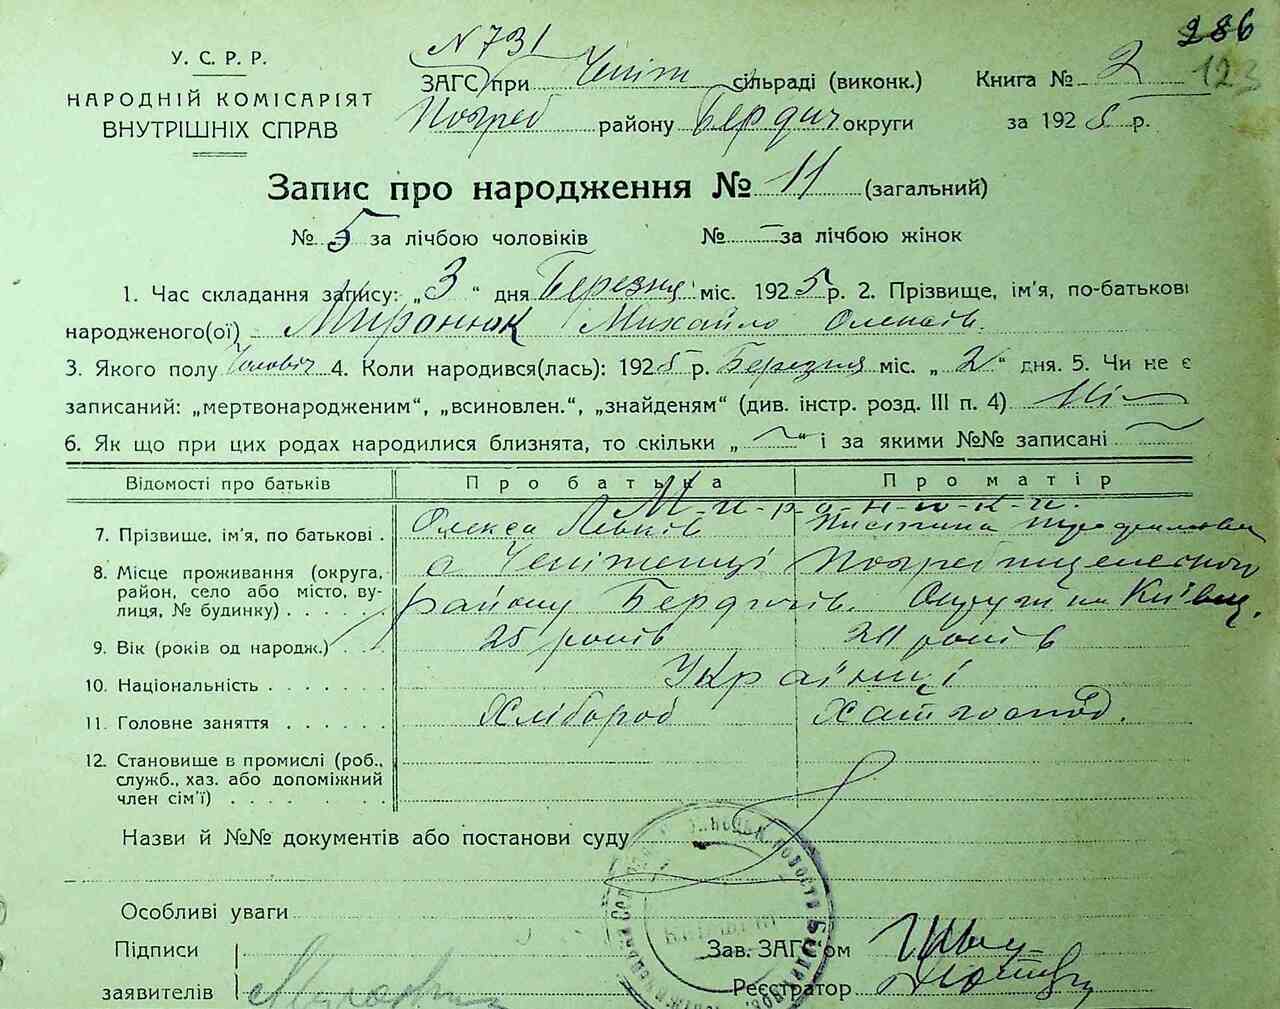 286
123
N 731
У. С. Р. Р.
НАРОДНІЙ КОМІСАРІЯТ
ВНУТРІШНІХ СПРАВ
ЗАГС при Чепіж сільраді (виконк.) Книга № 2
Погреб району Бердич округи за 1925 р.
Запис про народження № 11 (загальний)
№ 5 за лічбою чоловіків № – за лічбою жінок
1. Час складання запису: „3“ дня Березня міс. 1925 р. 2. Прізвище, ім'я, по-батькові
народженого(ої) Миронюк Михайло Олексів.
3. Якого полу Чоловіч 4. Коли народився(лась): 1925 р. Березня міс. „2“ дня. 5. Чи не є
записаний: „мертвонародженим“, „всиновлен.“, „знайденям“ (див. інстр. розд. III п. 4) Ні
6. Як що при цих родах народилися близнята, то скільки „ “ і за якими №№ записані
Відомості про батьків Про батька Про матір
М-и-р-о-н-ю-к-и.
7. Прізвище, ім'я, по батькові . Олекса Левків
8. Місце проживання (округа, район, село або місто, вулиця, № будинку) . . . . . с Чепіженці Погребищенського
району Бердичів. Округи на Київщ.
9. Вік (років од народж.) . . 25 років років
10. Національність . . . . . . . Українці
11. Головне заняття . . . . . . Хлібороб Хатн господ.
12. Становище в промислі (роб., служб., хаз. або допоміжний член сім'ї) . . . . . . . .
Назви й №№ документів або постанови суду
Особливі уваги
Підписи
заявителів
Зав. ЗАГС'ом
Реєстратор